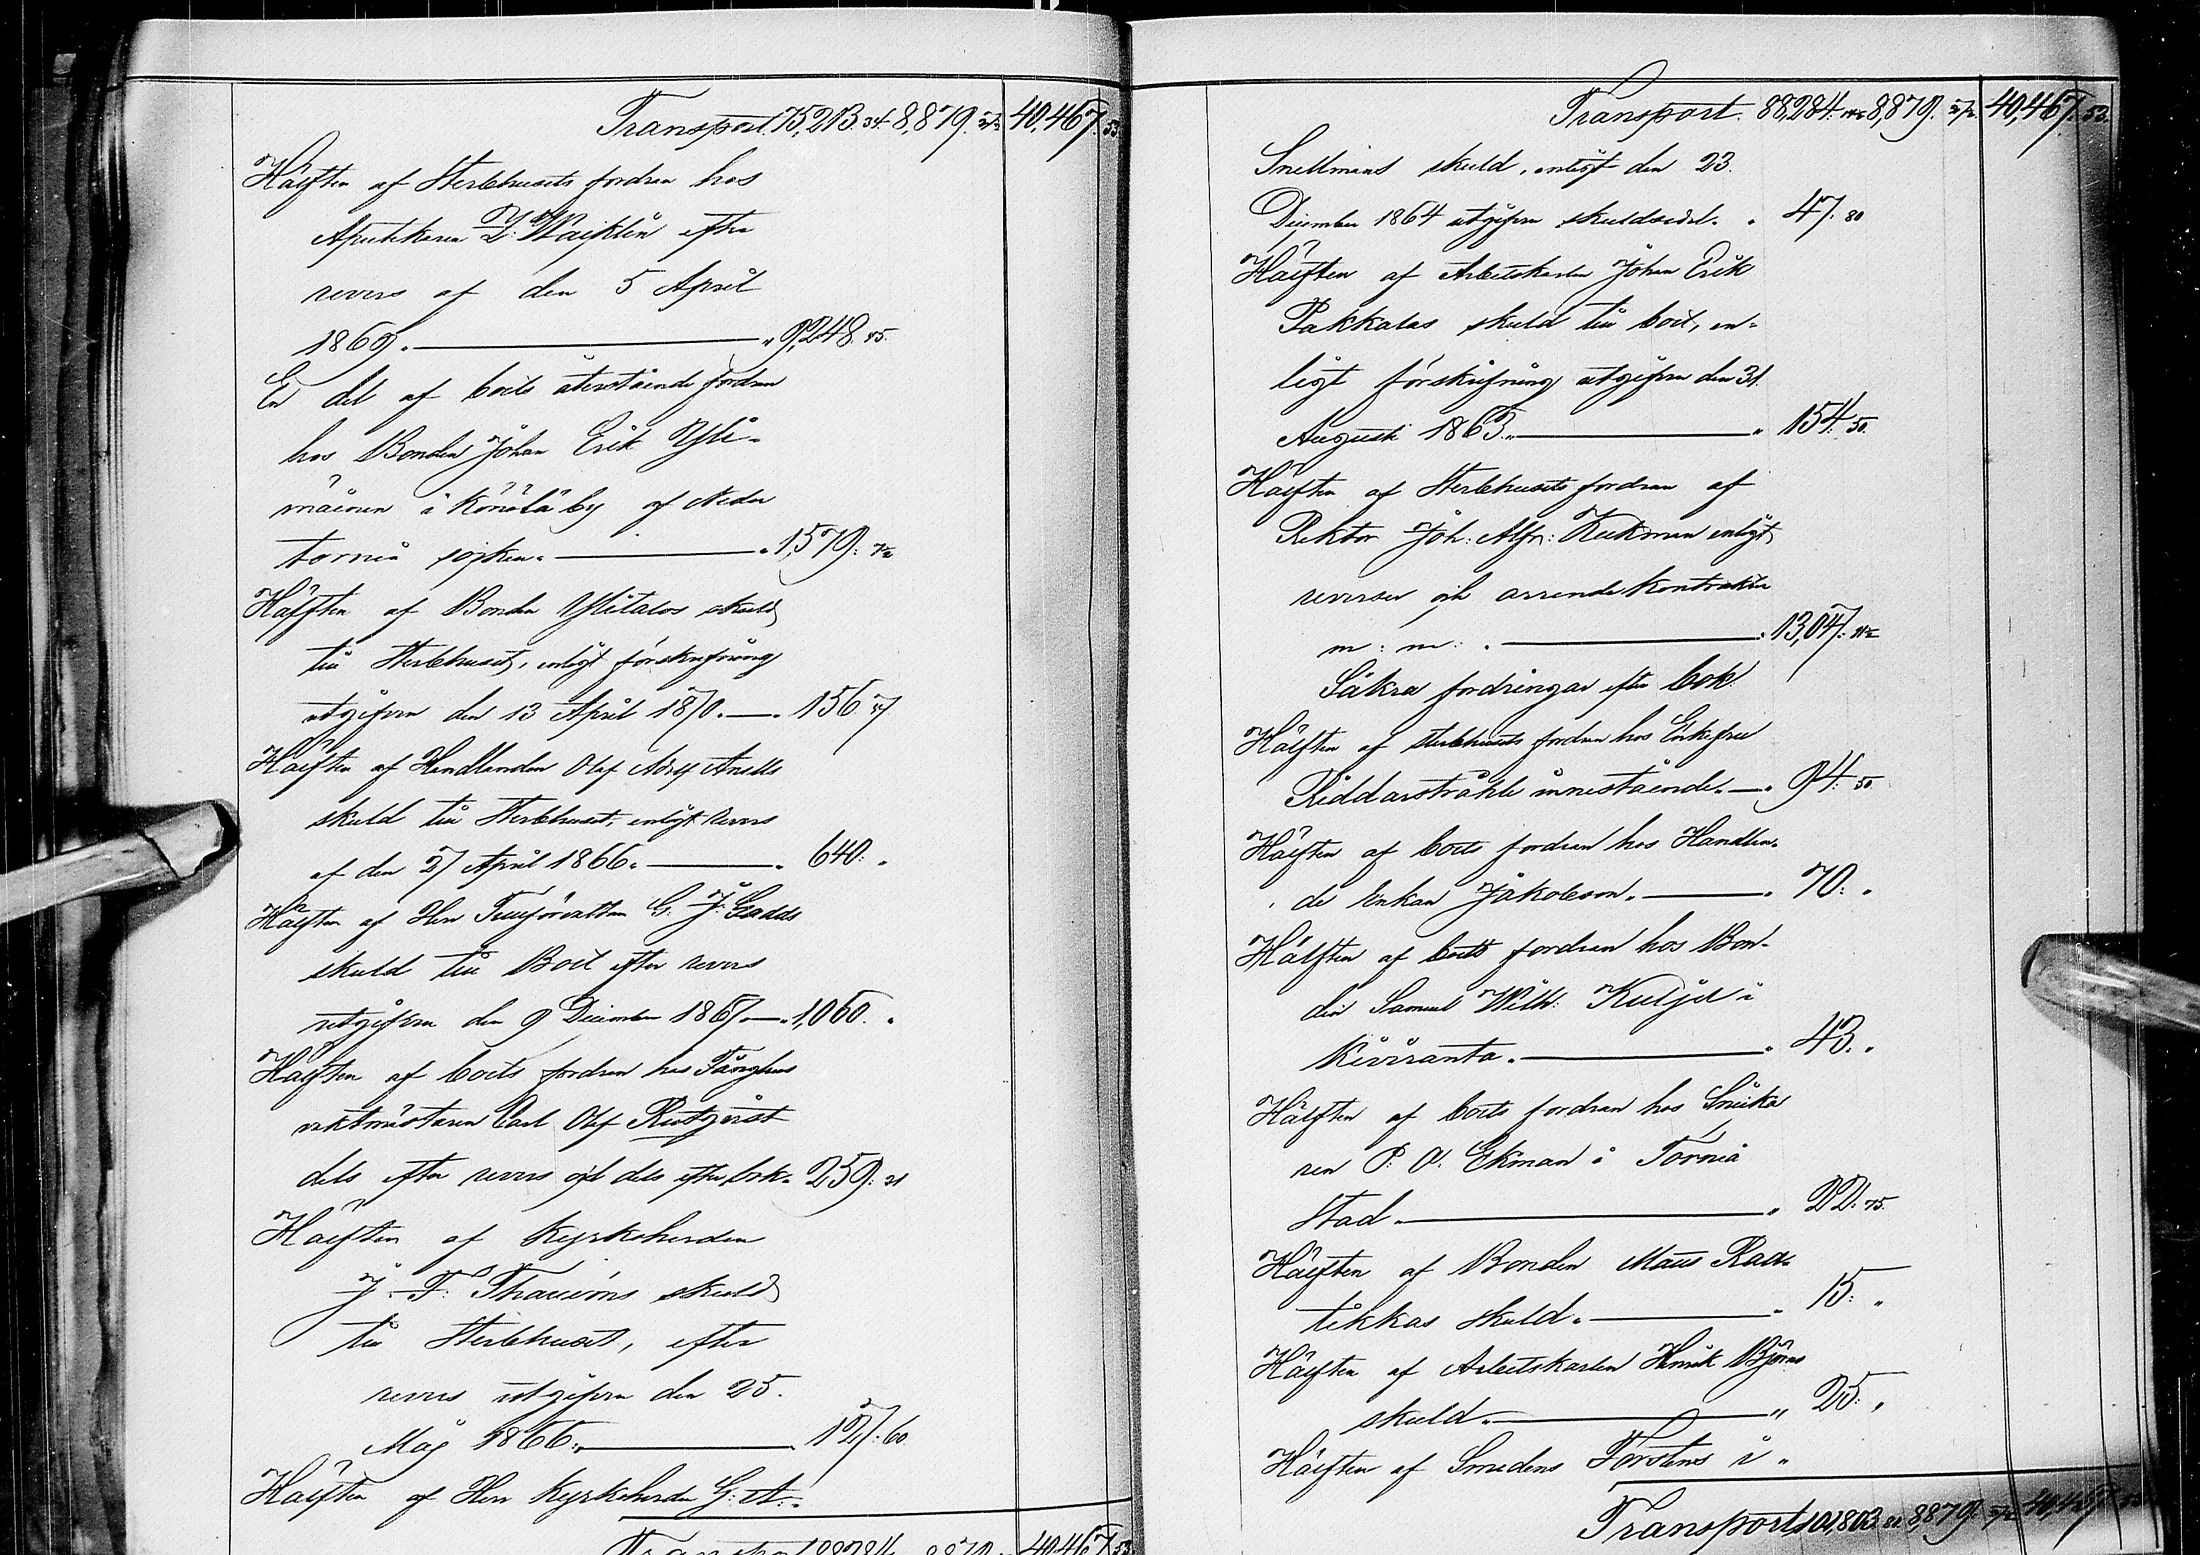 Transport 75,213. 34. 8,879. 40,467. 53.
Hälften af Sterbhusets fordran hos
Apothekaren efter
revers af den 5 April
1869. — „ 9,248. 85.
En del af boets återstående fordran
hos Bonden Johan Erik Yli-
mäinen i Könölä by af Neder
torneå socken. — „ 1,579:
Hälften af Bonden Ylitalos skuld
till Sterbhuset, enligt förskrifning
utgifven den 13 April 1870. — „ 156. 57
Hälften af Handlanden Olof Adolf
skuld till Sterbhuset, enligt revers
af den 27 April 1866. — „ 640: „
Hälften af Herr Tullförvaltaren G. J. Gadds
skuld till Boet efter revers
utgifven den 9 December 1867. — „ 1,060. „
Hälften af boets fordran hos Fånghus
vaktmästaren Carl Olof Rutqvist
dels efter revers och dels efter bok. 259: 21
Hälften af Kyrkoherden
J. F. Thauvóns skuld
till Sterbhuset, efter
revers utgifven den 25.
Maj 1866. — 127: 60
Hälften af Herr Kyrkoherden G: A:
Transport 88284 8,879 40,467. 53
Transport. 88,284. 8,879. 40,467. 53.
Snellmans skuld, enligt den 23.
December 1864 utgifven skuldsedel. „ 47: 80
Hälften af Arbetskarlen Johan Erik
Pakkalas skuld till boet, en-
ligt förskrifning utgifven den 31
Augusti 1863. — „ 154: 50.
Hälften af Sterbhusets fordran af
Rektor Joh: Alfr: Keckman enligt
reverser och arrendekontrakter
m: m: — 13,047:
Säkra fordringar efter bok.
Hälften af sterbhusets fordran hos Enkefru
Riddarstråhle innestående. — „ 94: 50
Hälften af boets fordran hos Handlan-
de Enkan Jakobson. — „ 70: „
Hälften af boets fordran hos Bon-
den Samuel Wilh: Kuljed i
Kiviranta. — „ 43. „
Hälften af boets fordran hos Snicka
ren P. A. Ekman i Torneå
Stad. — „ 22: 75.
Hälften af Bonden Mans Raa-
tikkas skuld. — „ 15: „
Hälften af Arbetskarlen Henrik Björns
skuld. — „ 25: „
Hälften af Smedens Forstens i „
Transport 101,803. 82 8,879. 40,467. 53